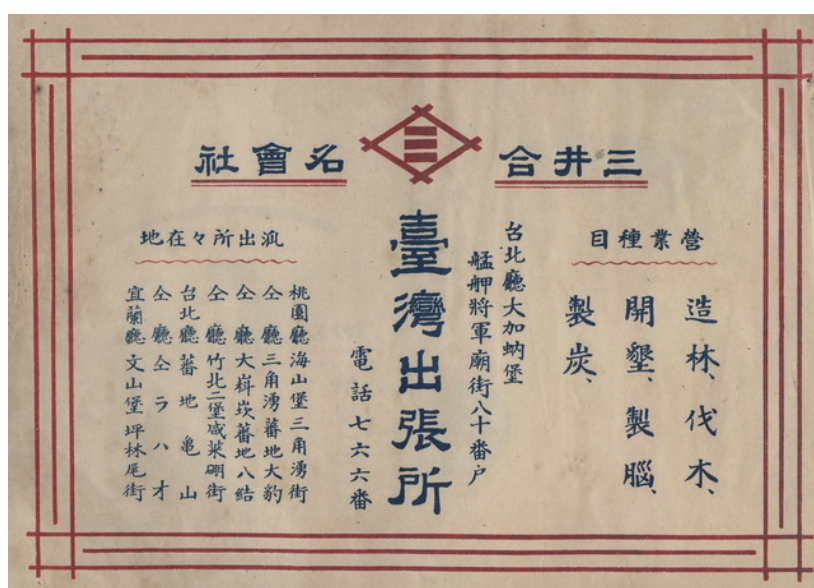 三井合名會社
臺灣出張所
營業種目
造林、伐木、
開墾、製腦、
製炭、
台北廳大加蚋堡
艋舺將軍廟街八十番戶
電話七六六番
派出所々在地
桃園廳海山堡三角湧街
仝廳三角湧蕃地大豹
仝廳大嵙崁蕃地八結
仝廳竹北二堡咸菜硼街
台北廳蕃地亀山
仝廳仝ラハオ
宜蘭廳文山堡坪林尾街